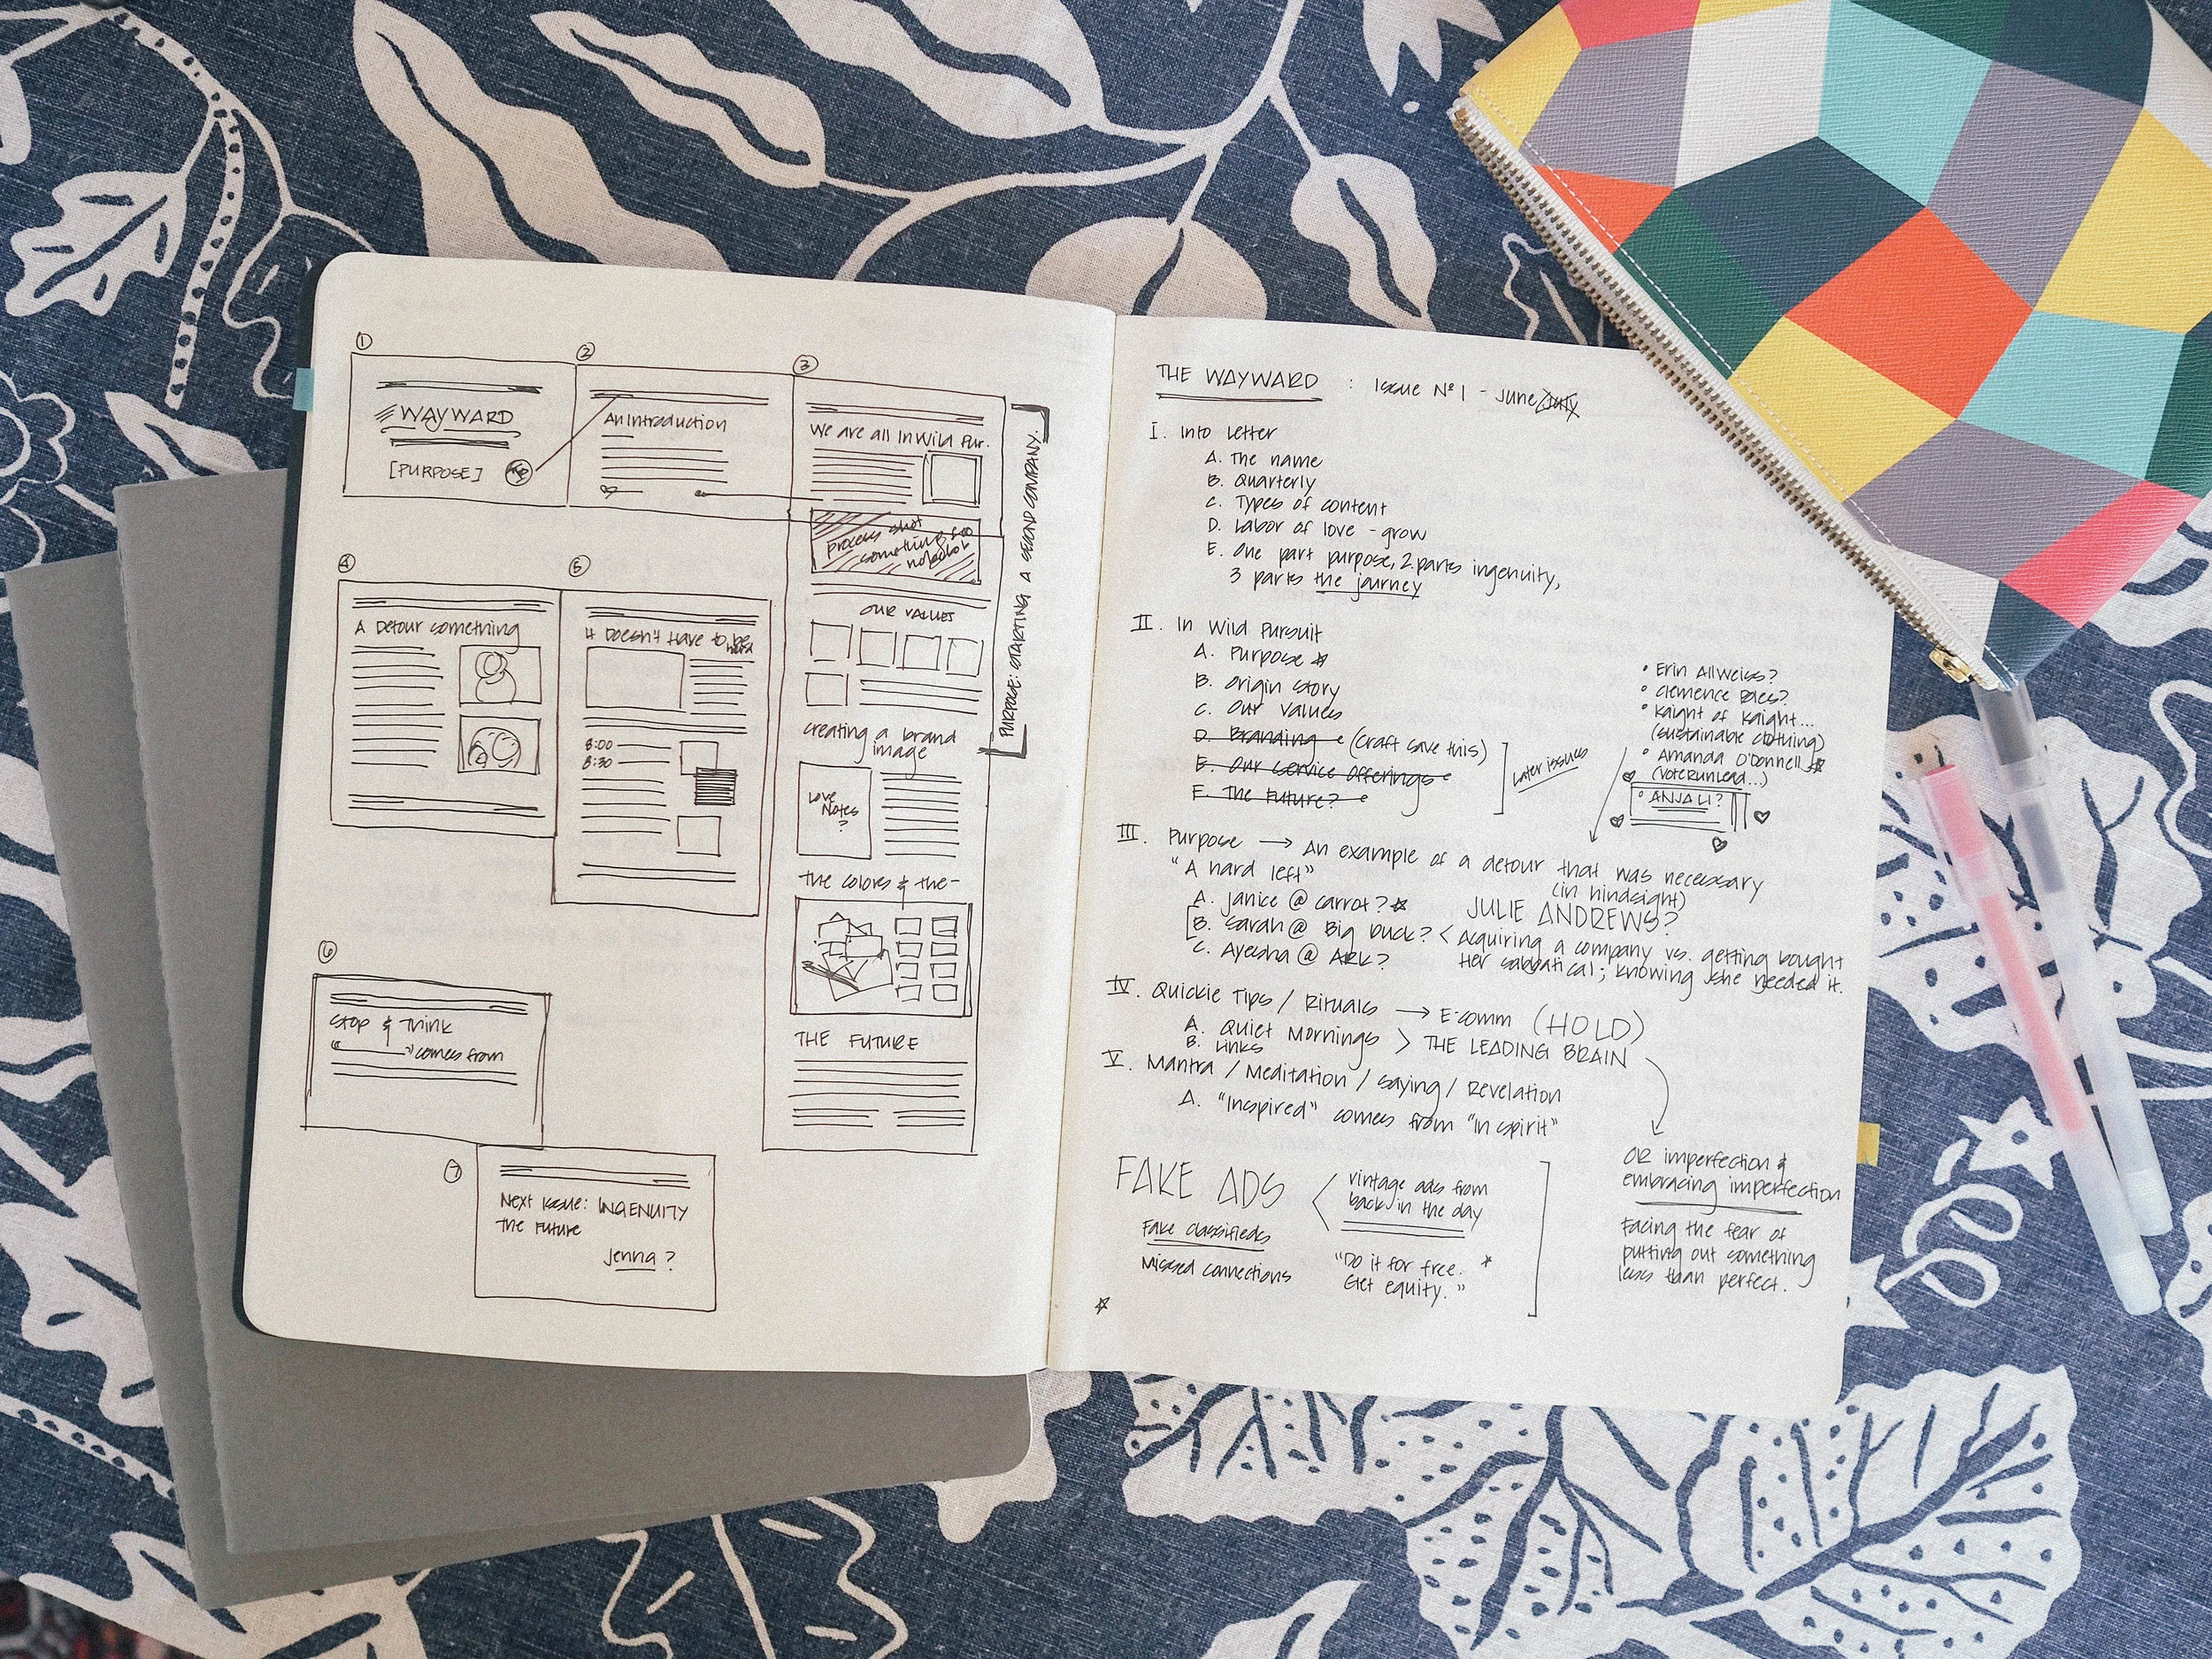 ①
WAYWARD
[PURPOSE]
②
An Introduction
③
We are all In Wild Pur.
process shot
something
OUR VALUES
creating a brand
image
Love
Notes
?
The colors & the-
THE FUTURE
PURPOSE: STARTING A SECOND COMPANY.
④
A Detour something
⑤
It Doesn't Have to be
hard
8:00
8:30
⑥
Stop & Think
"comes from
⑦
Next Issue: INGENUITY
The Future
Jenna?
THE WAYWARD : Issue Nº 1 - June/July
I. Into Letter
A. The name
B. Quarterly
C. Types of content
D. Labor of love - grow
E. One part purpose, 2 parts ingenuity,
3 parts the journey
II. In Wild Pursuit
A. Purpose ☆
B. Origin Story
C. Our Values
D. Branding (Craft save this)
E. Our Service Offerings
F. The Future?
Later issues
• Erin Allweiss?
• Clemence Poles?
• Kaight of Kaight...
(sustainable clothing)
• Amanda O'Donnell ☆
(VoteRunLead...)
• ANJALI?
III. Purpose → An example of a detour that was necessary
"A hard left" (in hindsight)
A. Janice @ Carrot? ☆ JULIE ANDREWS?
B. Sarah @ Big Duck? < Acquiring a company vs. getting bought
C. Ayesha @ ARK? Her sabbatical; knowing she needed it.
IV. Quickie Tips / Rituals → E-comm (HOLD)
A. Quiet Mornings > THE LEADING BRAIN
B. Links
V. Mantra / Meditation / Saying / Revelation
A. "Inspired" comes from "in spirit"
OR imperfection &
embracing imperfection
Facing the fear of
putting out something
less than perfect.
FAKE ADS < vintage ads from
back in the day
Fake classifieds
Missed connections
"Do it for free. *
Get equity."
☆